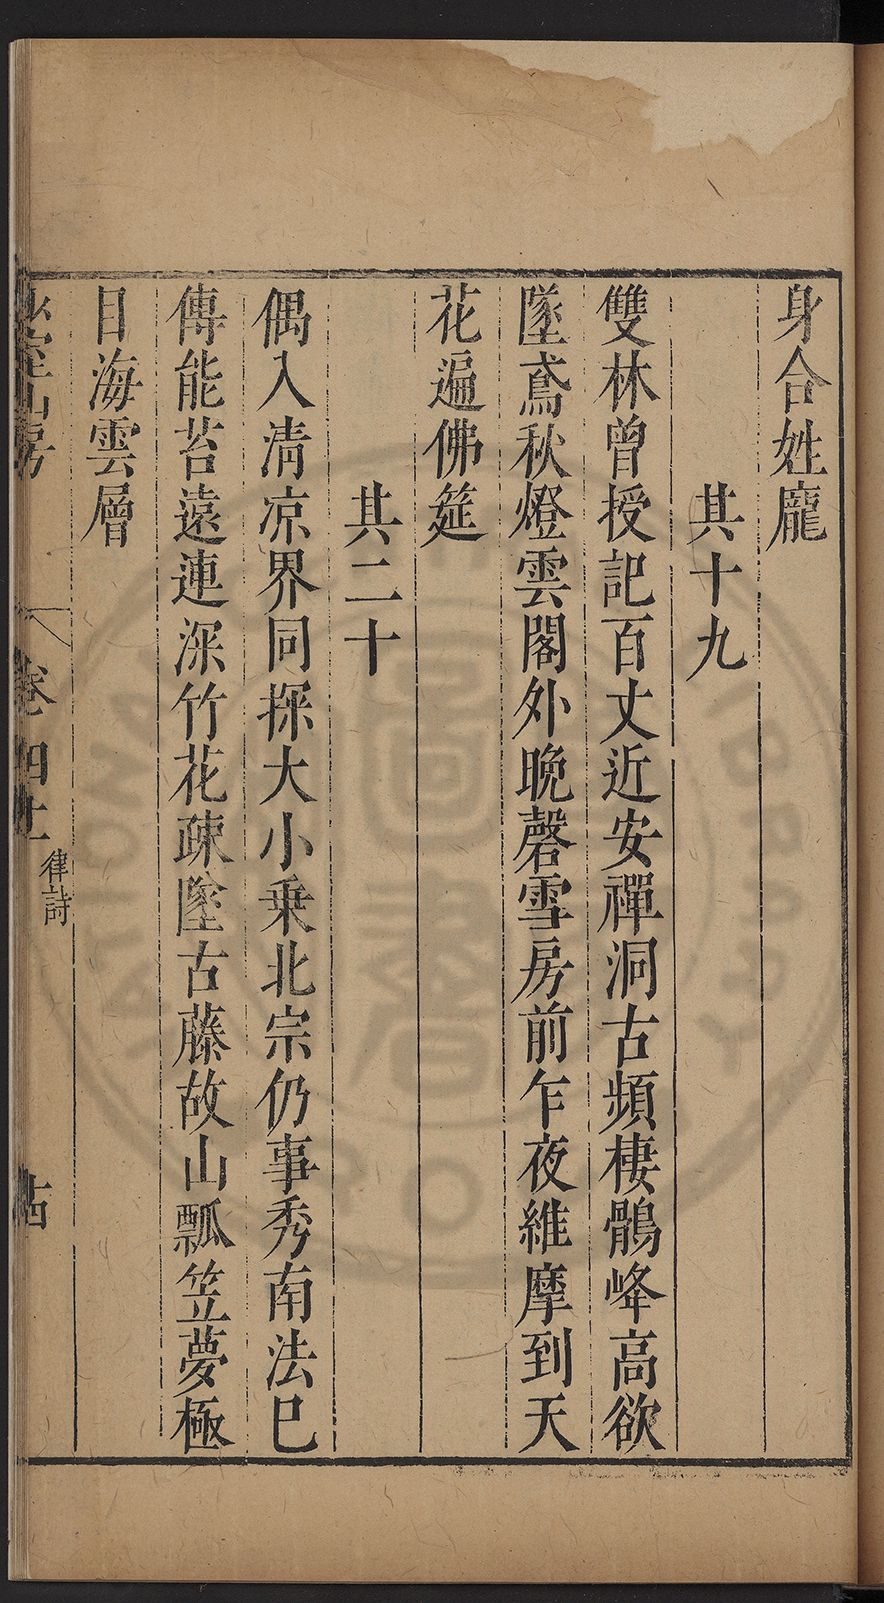 身合姓龐
其十九
雙林曾授記百丈近安禪洞古頻棲鶻峰高欲
墜鳶秋燈雲閣外晚磬雪房前乍夜維摩到天
花遍佛筵
其二十
偶入清凉界同探大小乗北宗仍事秀南法巳
傳能苔遠連深竹花疎墜古藤故山瓢笠夢極
目海雲層
山房
卷四上
律詩